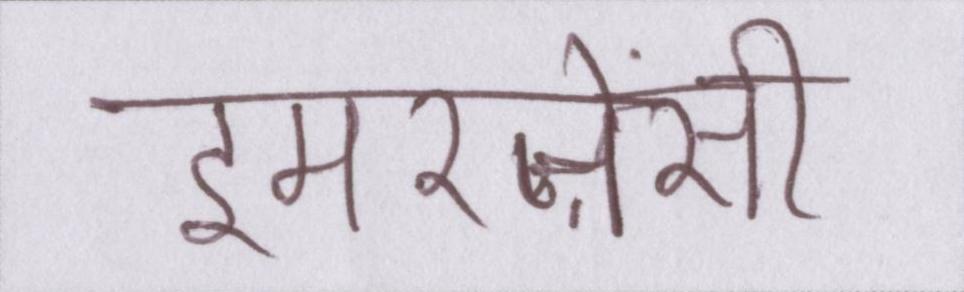 इमरज़ेंसी